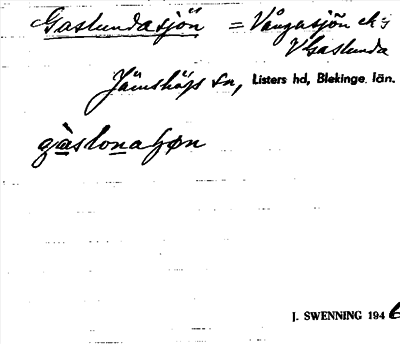 Gaslundasjön = Vångasjön ek:s
V Gaslunda
Jämshögs sn, Listers hd, Blekinge län.
gàslonaʃøn
J. SWENNING 1946